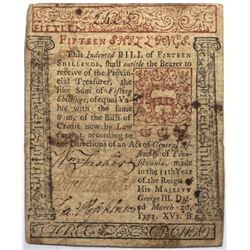 FIFTEEN
FIFTEEN SHILLINGS.
This Indented BILL of FIFTEEN
SHILLINGS, shall entitle the Bearer to
receive of the Provin-
cial Treasurer, the
like Sum of Fifteen
Shillings, of equal Va-
lue with the same
Sum, of the Bills of
Credit now by Law
current, according to
the Directions of an Act of General As-
sembly of Penn-
sylvania, made
in the 11th Year
of the Reign of
His MAJESTY
George III. Dat-
ed March 20,
1771. XVs.